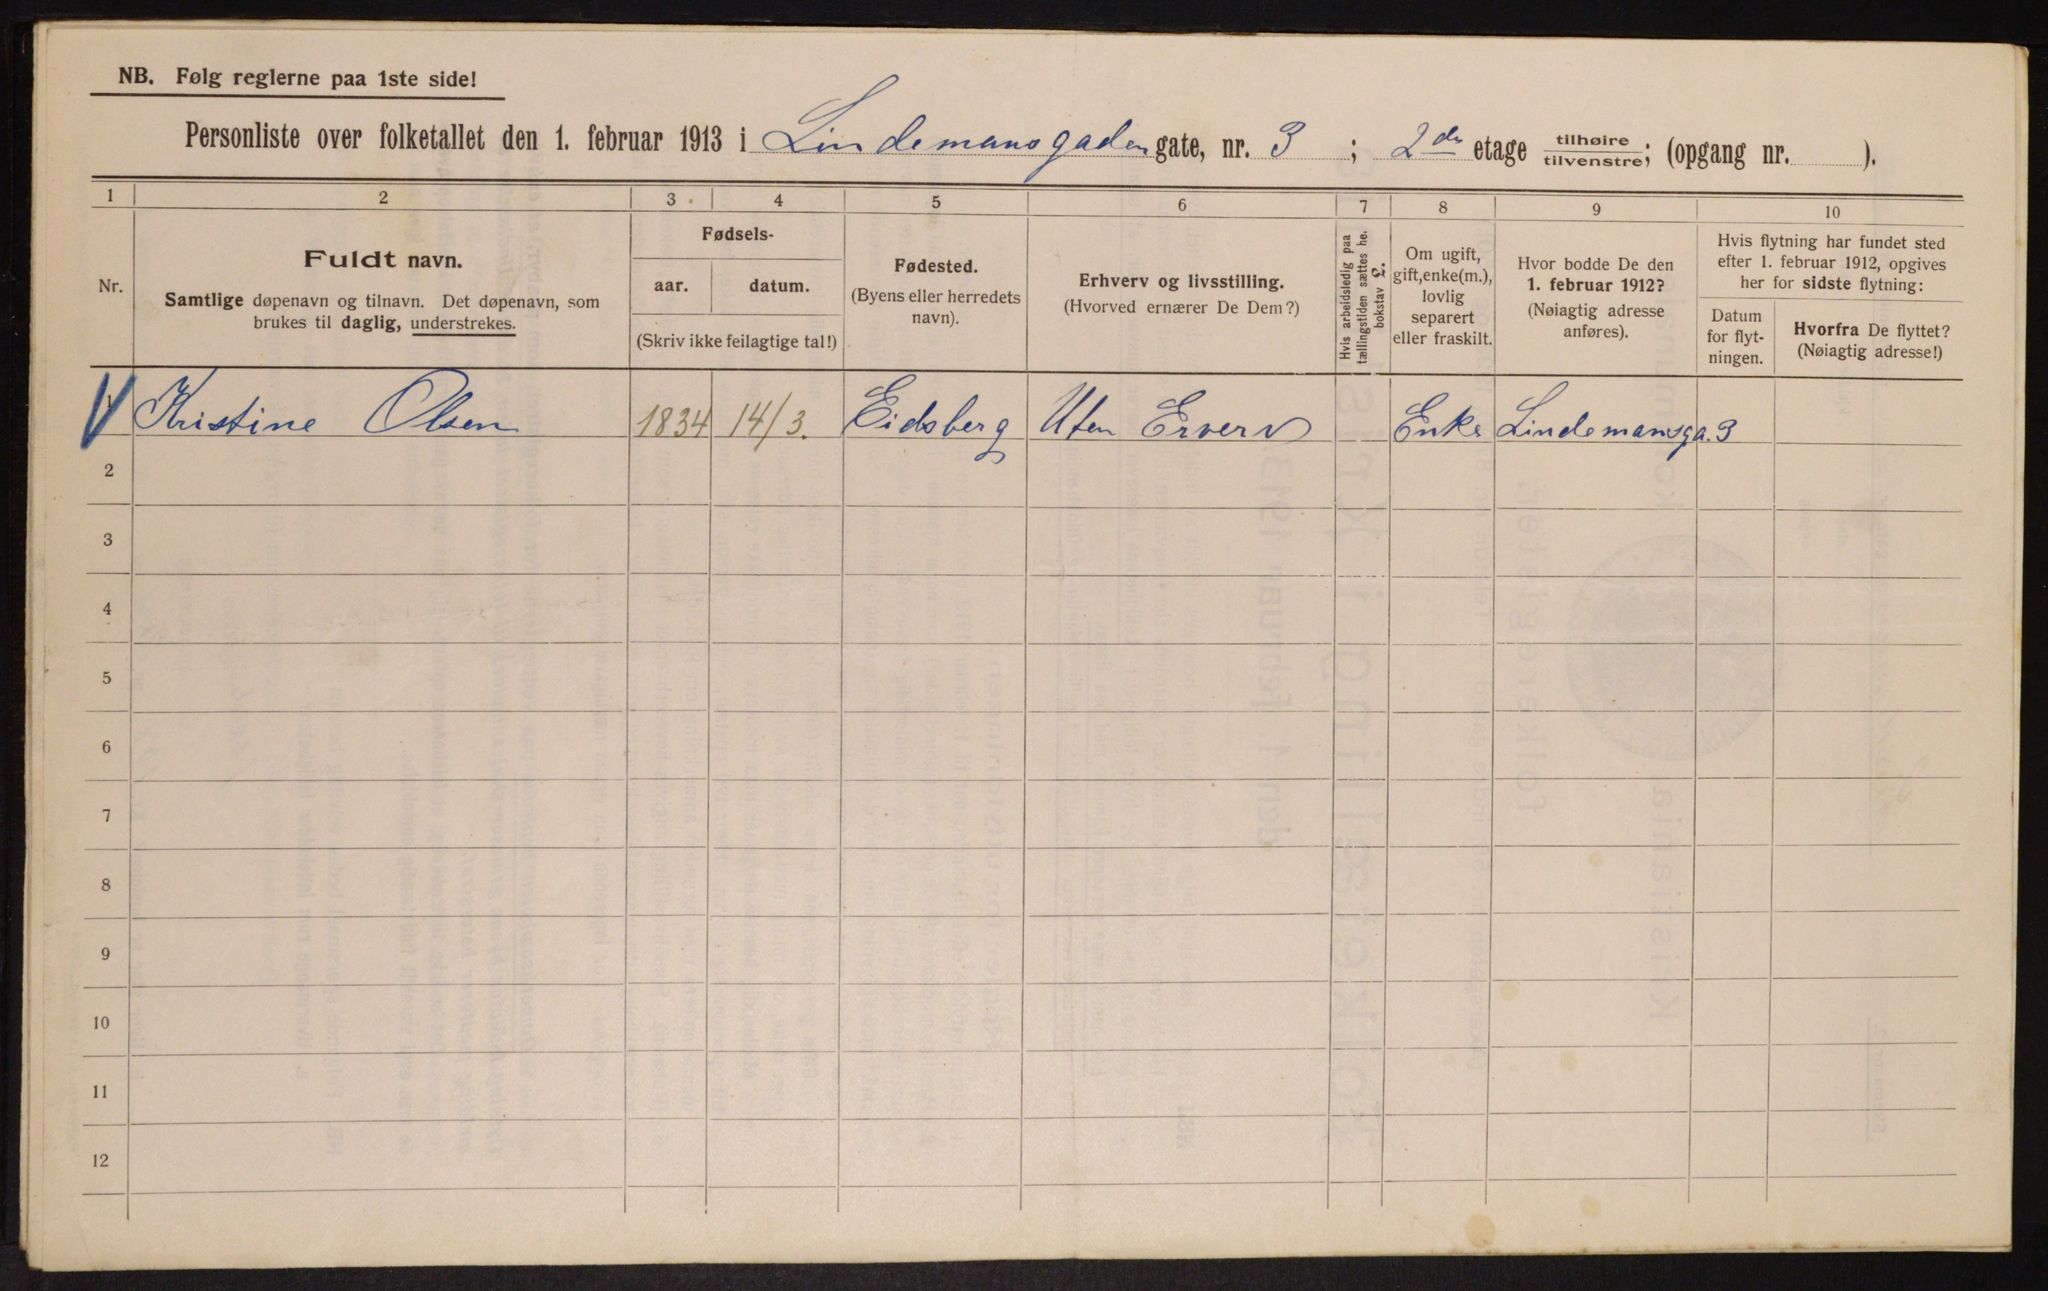 NB. Følg reglerne paa 1ste side!
Personliste over folketallet den 1. februar 1913 i Lindemansgaden gate, nr. 3 ; 2den etage tilhøire/tilvenstre; (opgang nr. ).
1 2 3 4 5 6 7 8 9 10
Nr.
Fuldt navn.
Samtlige døpenavn og tilnavn. Det døpenavn, som
brukes til daglig, understrekes.
Fødsels-
aar. datum.
(Skriv ikke feilagtige tal!)
Fødested.
(Byens eller herredets
navn).
Erhverv og livsstilling.
(Hvorved ernærer De Dem?)
Hvis arbeidsledig paa
tællingstiden sættes her
bokstav L.
Om ugift,
gift, enke(m.),
lovlig
separert
eller fraskilt.
Hvor bodde De den
1. februar 1912?
(Nøiagtig adresse
anføres).
Hvis flytning har fundet sted
efter 1. februar 1912, opgives
her for sidste flytning:
Datum
for flyt-
ningen.
Hvorfra De flyttet?
(Nøiagtig adresse!)
1 Kristine Olsen 1834 14/3. Eidsberg Uten Erverv Enke Lindemansga. 3
2
3
4
5
6
7
8
9
10
11
12